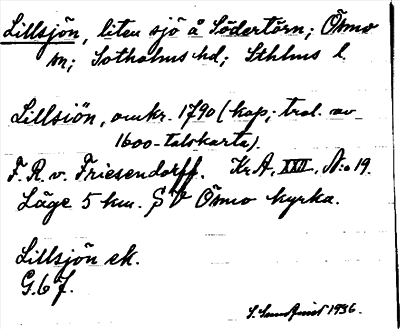 Lillsjön, liten sjö å Södertörn; Ösmo
sn; Sotholms hd; Sthlms l.
Lillsiön, omkr. 1790 (kop; trol. av
1600-talskarta).
F. R. v. Friesendorff. Kr A, XXII, N:o 19.
Läge 5 km. SV Ösmo kyrka.
Lillsjön ek.
G. 6 J.
S. Sundqvist 1936.